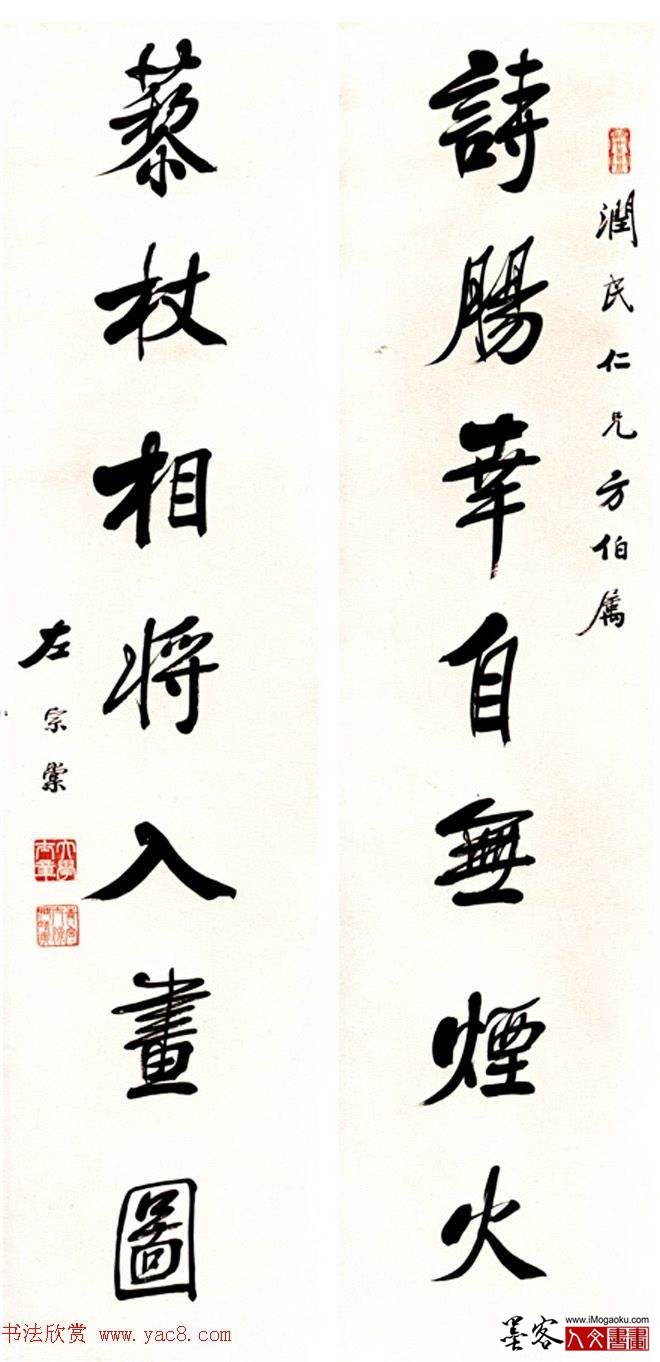 潤民仁兄方伯屬
詩腸幸自無煙火
藜杖相將入畫圖
左宗棠
大學士章
书法欣赏 www.yac8.com
墨客 www.iMogaoku.com
人文書畫